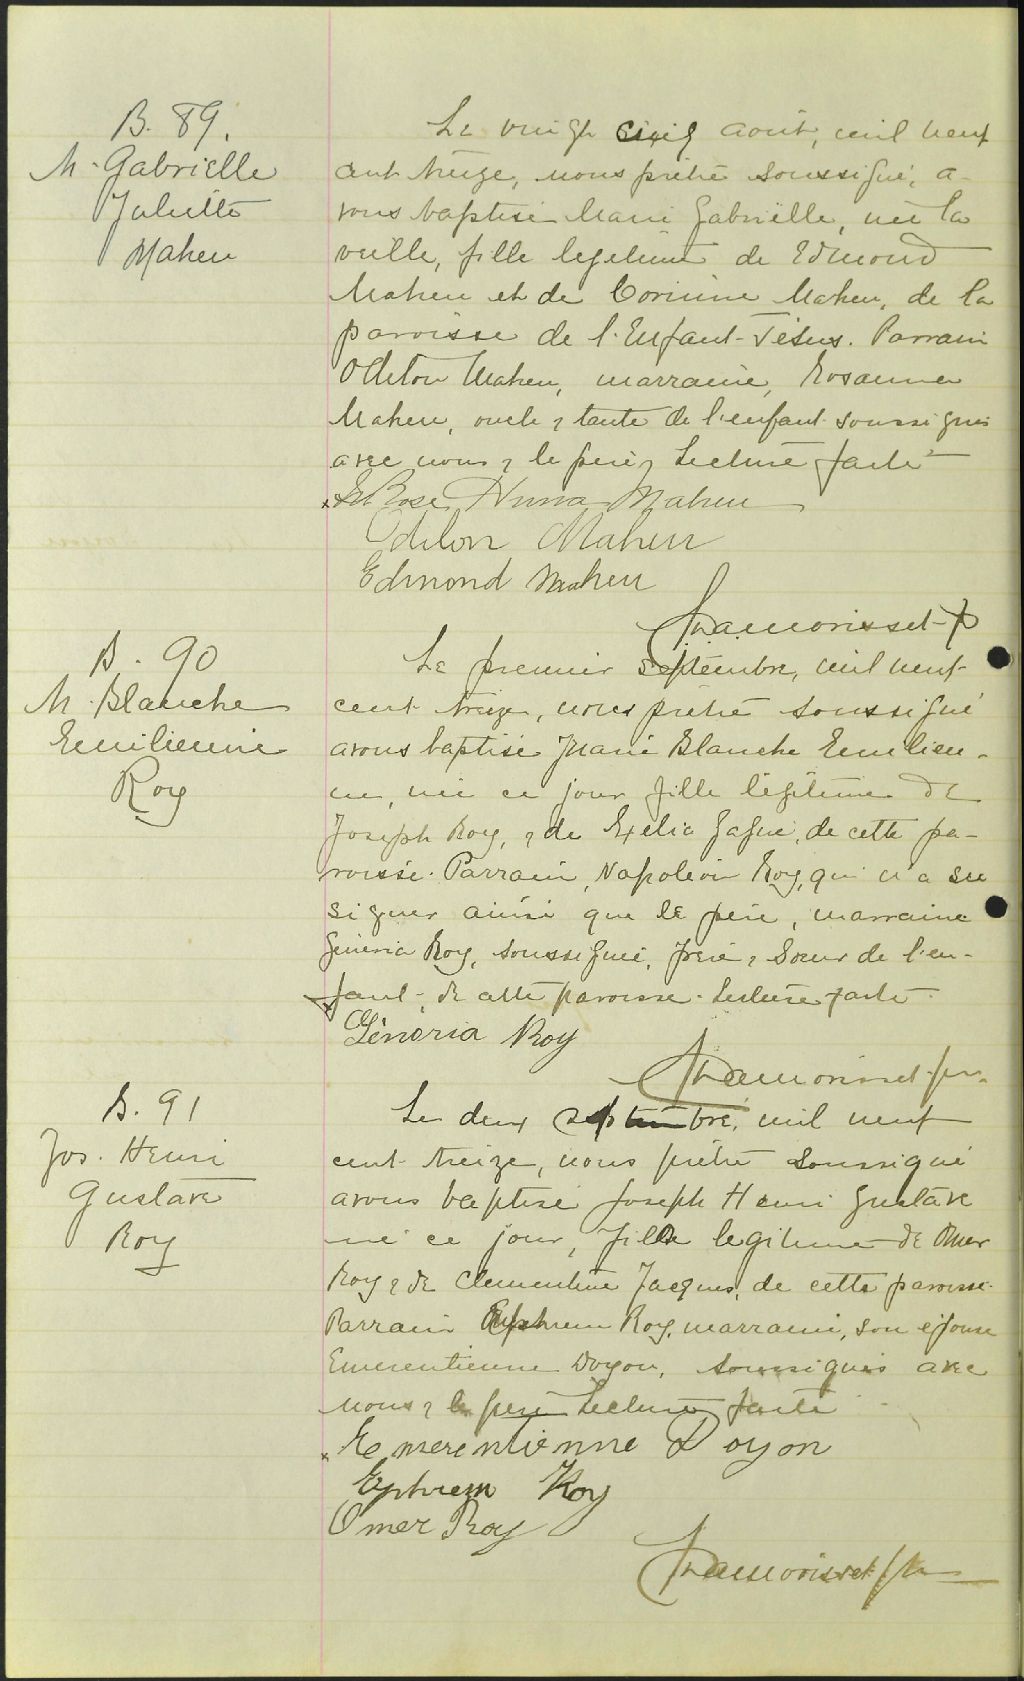 B. 89.
M. Gabrielle
Juliette
Maheu
Le vingt cinq août, mil neuf
cent treize, nous prêtre soussigné, a-
vons baptisé Marie Gabrielle, née la
veille, fille legitime de Edmond
Maheu et de Corinne Maheu, de la
paroisse de l'Enfant-Jésus. Parrain
Odilon Maheu, marraine, Rosanna
Maheu, oncle & tante de l'enfant soussignés
avec nous & le père, Lecture faite
x Rose Anna Maheu
Odilon Maheu
Edmond Maheu
Lamorisset p
B. 90
M. Blanche
Emilienne
Roy
Le premier septembre, mil neuf
cent treize, nous prêtre soussigné
avons baptisé Marie Blanche Emilien-
ne, née ce jour fille légitime de
Joseph Roy, & de Exelia Gagné, de cette pa-
roisse. Parrain, Napoléon Roy, qui n'a su
signer ainsi que le père, marraine
Généria Roy, soussignée, frère & soeur de l'en-
fant, de cette paroisse. Lecture faite.
Généria Roy
Lamorisset ptr.
B. 91
Jos. Henri
Gustave
Roy
Le deux septembre, mil neuf
cent treize, nous prêtre soussigné
avons baptisé Joseph Henri Gustave
né ce jour, fils legitime de Omer
Roy & de Clementine Jacques, de cette paroisse.
Parrain Ephrem Roy, marraine, son épouse
Emerentienne Doyon, soussignés avec
nous & le père Lecture faite
x Emerentienne Doyon
Ephrem Roy
Omer Roy
Lamorisset ptr